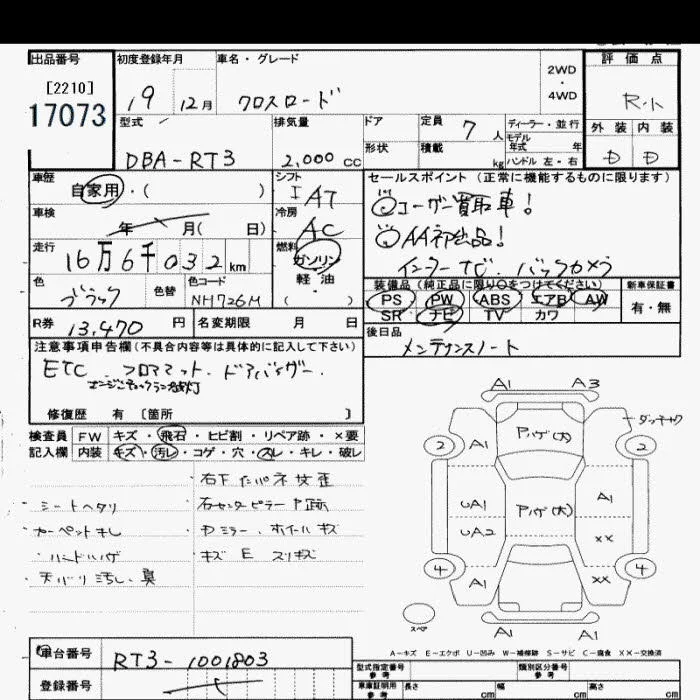 出品番号
[2210]
17073
初度登録年月
19年 12月
車名・グレード
クロスロード
2WD
・
4WD
評価点
R.A
外装 内装
D D
型式
DBA-RT3
排気量
2,000 cc
ドア
形状
定員 7 人
積載 kg
ディーラー・並行
モデル年式 年
ハンドル 左・右
車歴
自家用・( )
シフト
I AT
セールスポイント (正常に機能するものに限ります)
ユーザー買取車!
AA初出品!
インターナビ、バックカメラ
車検
年 月( 日)
冷房
AC
走行
16万6千032 km
燃料
ガソリン
軽油
( )
色
ブラック
色替
色コード
NH726M
装備品 (純正品に限り○をつけてください)
PS PW ABS エアB AW
SR ナビ TV カワ
新車保証書
有・無
R券 13,470 円
名変期限 月 日
後日品
メンテナンスノート
注意事項申告欄 (不具合内容等は具体的に記入して下さい)
ETC、フロアマット、ドアバイザー、
エンジンチェックランプ点灯
修復歴 有 〔箇所 〕
検査員 FW キズ・飛石・ヒビ割・リペア跡・×要
記入欄 内装 キズ・汚レ・コゲ・穴・スレ・キレ・破レ
シートヘタリ
カーペットキレ
ハンドルハゲ
天バリ汚レ、臭
石センターピラー
Dミラー、ホイールキズ
キズ E スリキズ
A1 A3
Pハゲ(大)
ダッシュ
2 A1 2
UA1 Pハゲ(大) A1
UA2 ××
4 A1 ×× 4
スペア
A1 A1
A-キズ E-エクボ U-凹み W-補修跡 S-サビ C-腐食 ××-交換済
車台番号
RT3-1001803
登録番号
型式指定番号 参考
類別区分番号 参考
車庫証明用 参考 長さ cm 幅 cm 高さ cm